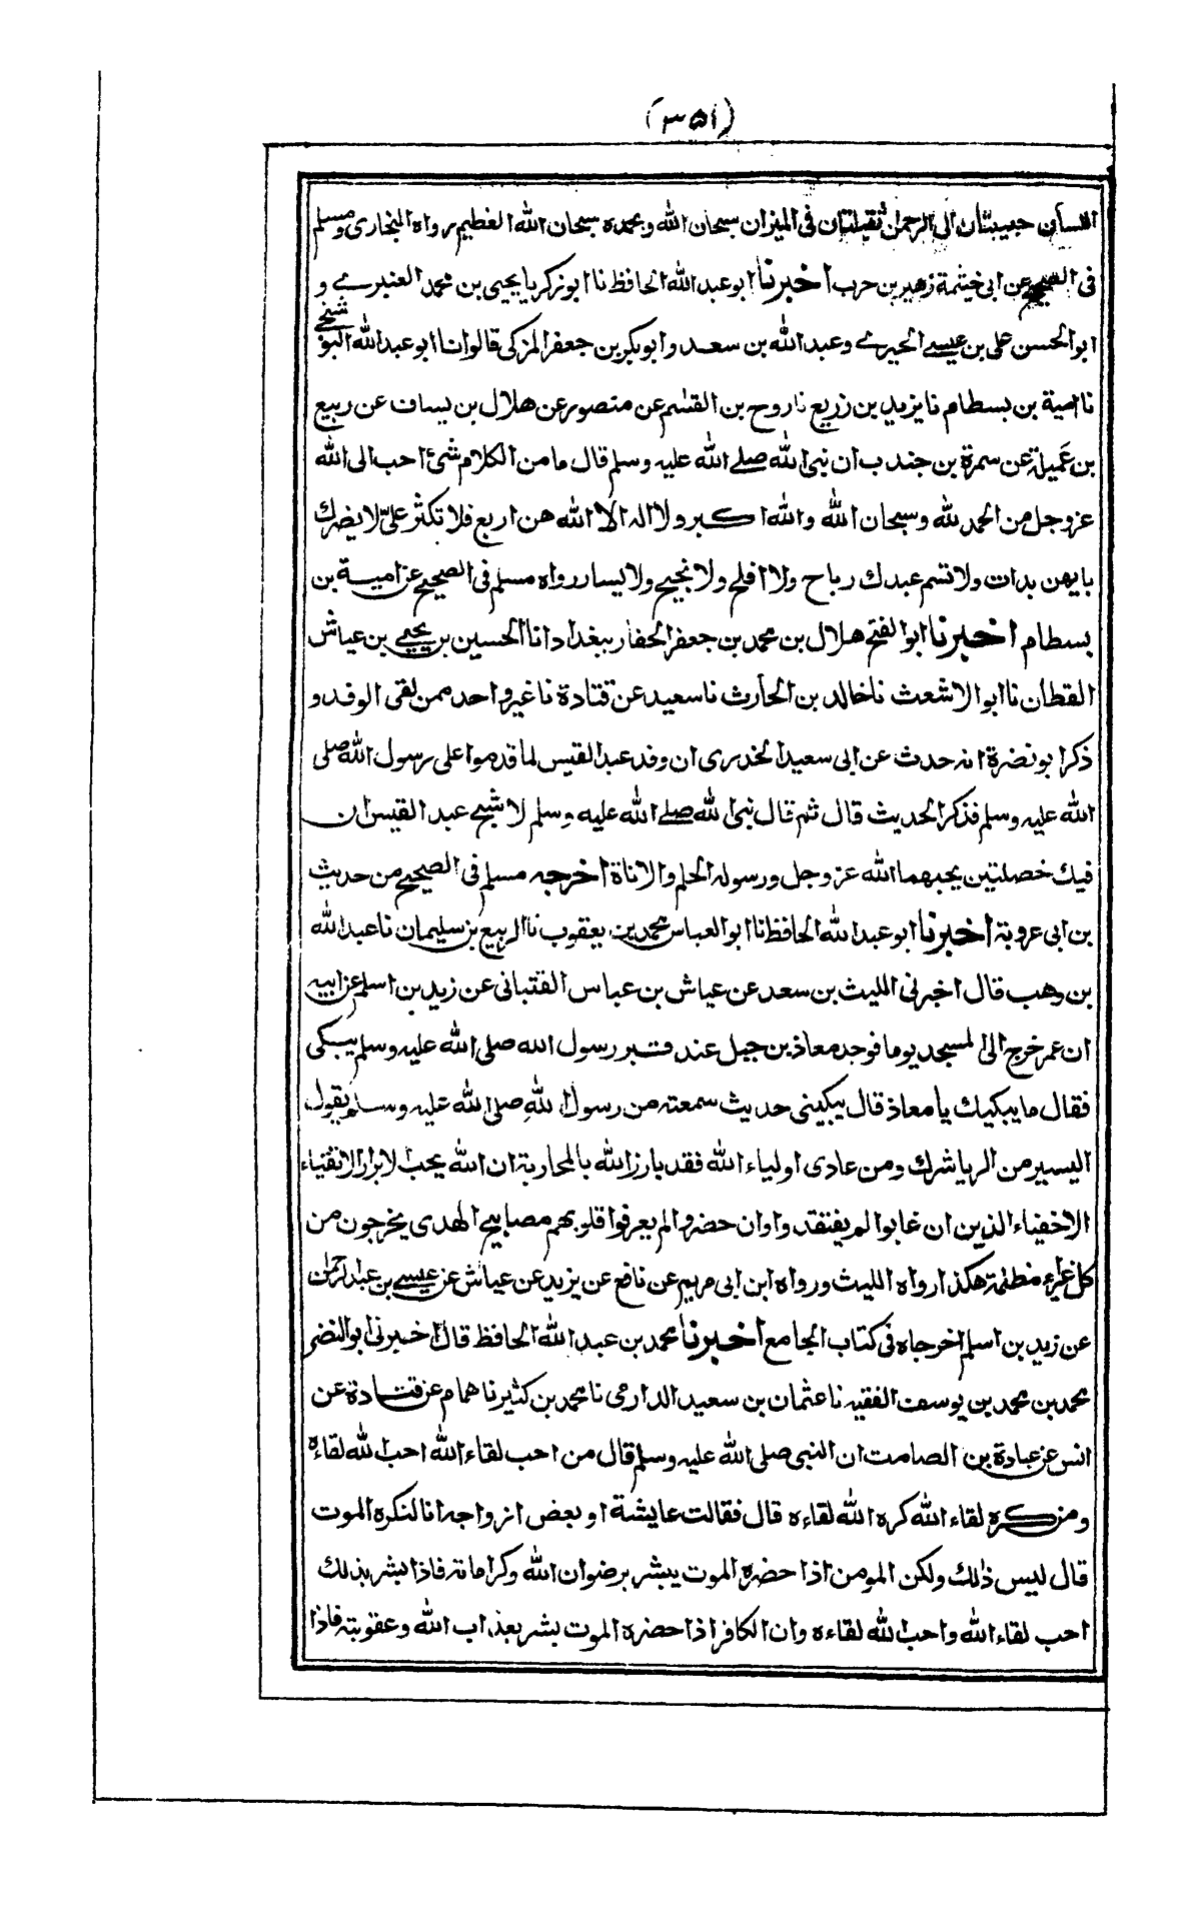 (۳۵۱)
اللسان حبيبتان الى الرحمن ثقيلتان فى الميزان سبحان الله وبحمده سبحان الله العظيم رواه البخارى ومسلم
فى الصحيح عن ابى خيثمة زهير بن حرب اخبرنا ابو عبد الله الحافظ نا ابو زكريا يحيى بن محمد العنبرے و
ابو الحسن على بن عيسے الحيرے وعبد الله بن سعد وابو بكر بن جعفر المزكى قالوا نا ابو عبد الله البوشنجے
نا امية بن بسطام نا يزيد بن زريع نا روح بن القسم عن منصور عن هلال بن يساف عن ربيع
بن عميلة عن سمرة بن جندب ان نبى الله صلے الله عليه وسلم قال ما من الكلام شئ احب الى الله
عز وجل من الحمد لله وسبحان الله والله اكبر ولا اله الا الله هن اربع فلا تكثر علىّ لا يضرك
بايهن بدات ولا تسم عبدك رباح ولا افلح ولا نجيح ولا يسار رواه مسلم فى الصحيح عن امية بن
بسطام اخبرنا ابو الفتح هلال بن محمد بن جعفر الحفار ببغداد انا الحسين بن يحيے بن عياش
القطان نا ابو الاشعث نا خالد بن الحارث نا سعيد عن قتادة نا غير واحد ممن لقى الوفد و
ذكر ابو نضرة انه حدث عن ابى سعيد الخدرى ان وفد عبد القيس لما قدموا على رسول الله صلى
الله عليه وسلم فذكر الحديث قال ثم قال نبى الله صلے الله عليه وسلم لاشج عبد القيس ان
فيك خصلتين يحبهما الله عز وجل ورسوله الحلم والاناة اخرجه مسلم فى الصحيح من حديث
بن ابى عروبة اخبرنا ابو عبد الله الحافظ نا ابو العباس محمد بن يعقوب نا الربيع بن سليمان نا عبد الله
بن وهب قال اخبرنى الليث بن سعد عن عياش بن عباس القتبانى عن زيد بن اسلم عن ابيه
ان عمر خرج الى المسجد يوما فوجد معاذ بن جبل عند قبر رسول الله صلى الله عليه وسلم يبكى
فقال ما يبكيك يا معاذ قال يبكينى حديث سمعته من رسول الله صلى الله عليه وسلم يقول
اليسير من الريا شرك ومن عادى اولياء الله فقد بارز الله بالمحاربة ان الله يحب الابرار الاتقياء
الاخفياء الذين ان غابوا لم يفتقدوا وان حضروا لم يعرفوا قلوبهم مصابيح الهدى يخرجون من
كل غبراء مظلمة هكذا رواه الليث ورواه ابن ابى مريم عن نافع عن يزيد عن عياش عن عيسے بن عبد الرحمن
عن زيد بن اسلم اخرجاه فى كتاب الجامع اخبرنا محمد بن عبد الله الحافظ قال اخبرنى ابو النضر
محمد بن محمد بن يوسف الفقيه نا عثمان بن سعيد الدارمى نا محمد بن كثير نا همام عن قتادة عن
انس عن عبادة بن الصامت ان النبى صلى الله عليه وسلم قال من احب لقاء الله احب الله لقاءه
ومن كره لقاء الله كره الله لقاءه قال فقالت عايشة او بعض ازواجه انا لنكره الموت
قال ليس ذلك ولكن المومن اذا حضره الموت يبشر برضوان الله وكراماته فاذا بشر بذلك
احب لقاء الله واحب الله لقاءه وان الكافر اذا حضره الموت بشر بعذاب الله وعقوبته فاذا